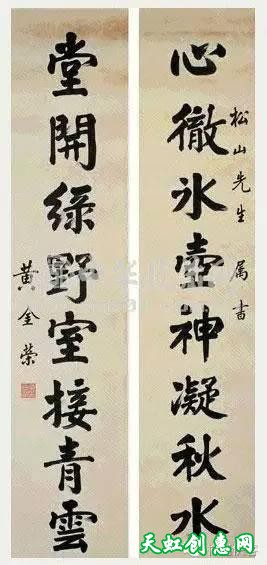 心徹冰壺神凝秋水
松山先生 属書
堂開綠野室接青雲
黃金榮
天虹创意网